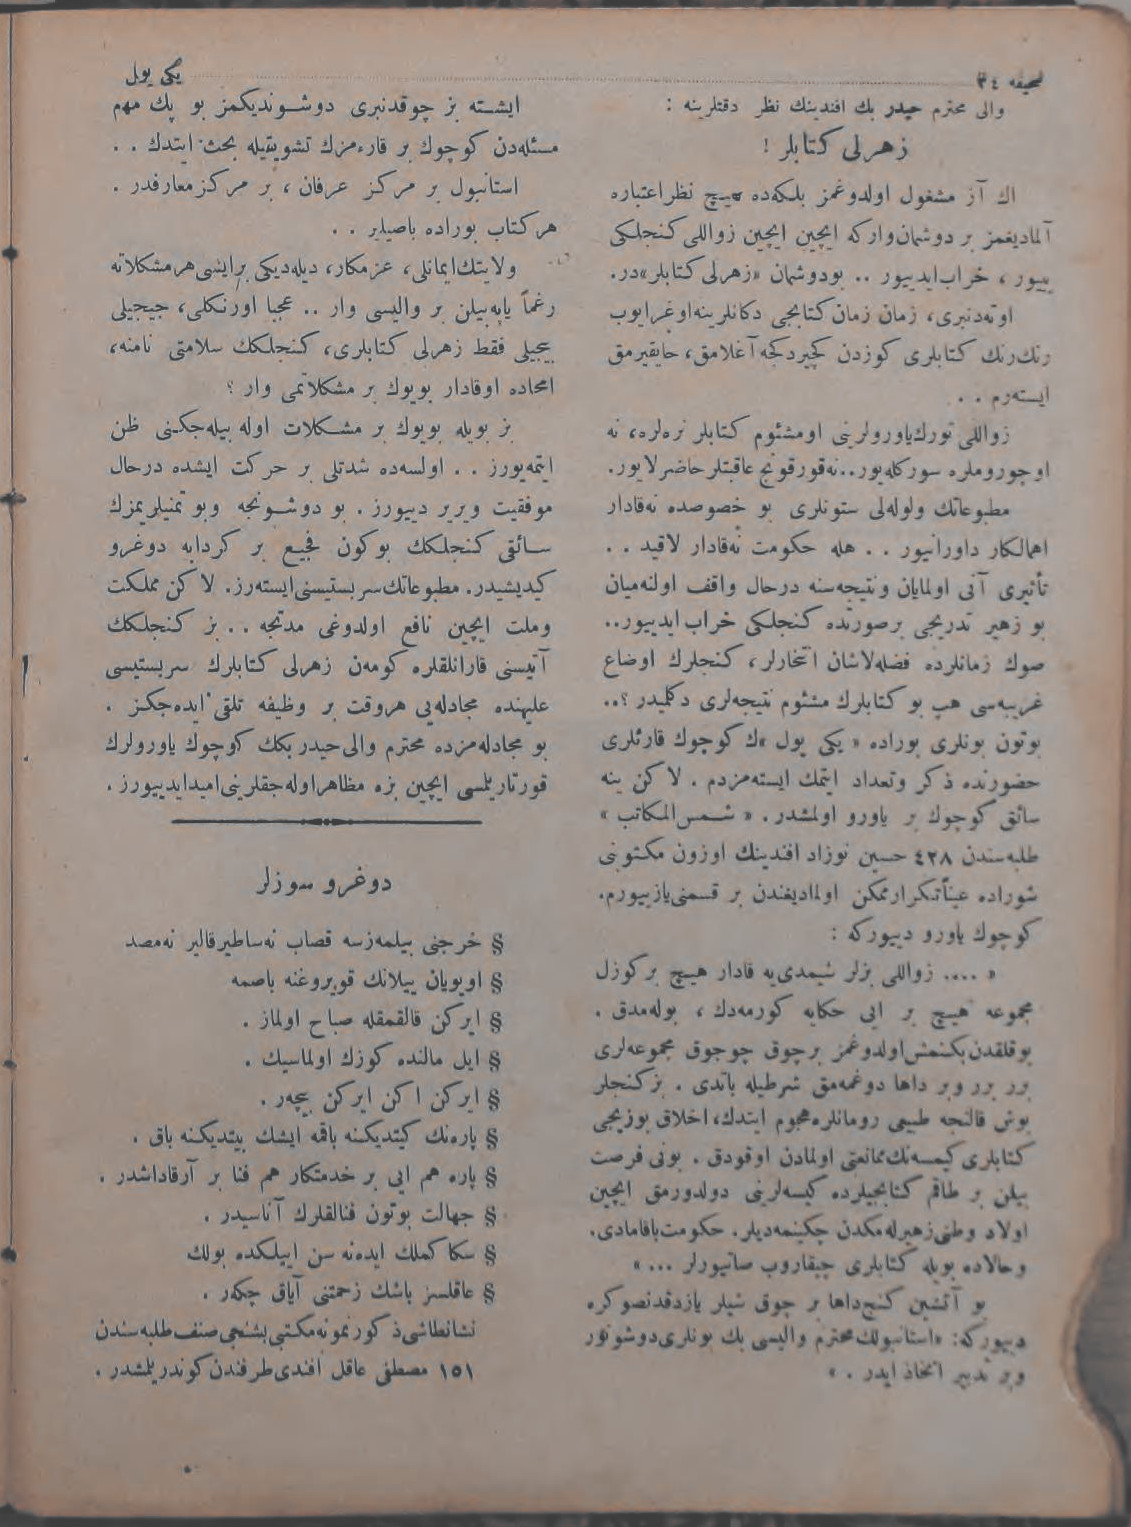 صحيفه ٣٤
يڭى يول
والى محترم حيدر بك افندينك نظر دقتلرينه :
زهرلى كتابلر !
اك آز مشغول اولدوغمز بلكه‌ده هيچ نظر اعتباره
آلماديغمز بر دوشمان واركه ايچين ايچين زواللى كنجلكى
ييور ، خراب ايدييور .. بودوشمان «زهرلى كتابلر»در.
اوته‌دنبرى، زمان زمان كتابجى دكانلرينه اوغرايوب
رنك رنك كتابلرى كوزدن كچيردكجه آغلامق، حايقيرمق
ايسته‌رم . .
زواللى تورك ياورولرينى اومشئوم كتابلر نره‌لره، نه
اوچوروملره سوركله‌يور..نه‌قورقونج عاقبتلر حاضرلايور.
مطبوعاتك ولوله‌لى ستونلرى بو خصوصده نه‌قادار
اهمالكار داورانيور . . هله حكومت نه‌قادار لاقيد . .
تأثيرى آنى اولمايان ونتيجه‌سنه درحال واقف اولنه‌ميان
بو زهير تدريجى برصورتده كنجلكى خراب ايدييور..
صوك زمانلرده فضله‌لاشان انتحارلر، كنجلرك اوضاع
غريبه‌سى هپ بو كتابلرك مشئوم نتيجه‌لرى دكلميدر ؟..
بوتون بونلرى بوراده « يكى يول »ك كوچوك قارئلرى
حضورنده ذكر وتعداد ايتمك ايسته‌مزدم . لاكن ينه
سائق كوچوك بر ياورو اولمشدر . « شمس المكاتب »
طلبه‌سندن ٤٢٨ حسين نوزاد افندينك اوزون مكتوبنى
شوراده عيناً تكرار ممكن اولماديغندن بر قسمنى يازييورم.
كوچوك ياورو دييوركه :
« .... زواللى بزلر شيمدى‌يه قادار هيچ بر كوزل
مجموعه هيچ بر ايى حكايه كورمه‌دك ، بوله‌مدق .
بوقلقدن بكنمش اولدوغمز برچوق چوجوق مجموعه‌لرى
برر برر وبر داها دوغمه‌مق شرطيله باتدى . بز كنجلر
بوش قالنجه طبيعى رومانلره هجوم ايتدك، اخلاق بوزيجى
كتابلرى كيمسه‌نك ممانعتى اولمادن اوقودق . بونى فرصت
بيلن بر طاقم كتابجيلرده كيسه‌لرينى دولدورمق ايچين
اولاد وطنى زهيرله‌مكدن چكينمه‌ديلر. حكومت باقمادى.
وحالاده بويله كتابلرى چيقاروب صاتيورلر ... »
بو آتشين كنج داها بر چوق شيلر يازدقدنصوكره
دييوركه: «استانبولك محترم واليسى بك بونلرى دوشونور
وبر تدبير اتخاذ ايدر . »
ايشته بز چوقدنبرى دوشونديكمز بو پك مهم
مسئله‌دن كوچوك بر قارءمزك تشويقيله بحث ايتدك . .
استانبول بر مركز عرفان ، بر مركز معارفدر .
هر كتاب بوراده باصيلير . .
ولايتك ايمانلى، عزمكار، ديله‌ديكى برايشى هر مشكلاته
رغماً ياپه‌بيلن بر واليسى وار .. عجبا اورنكلى، جيجيلى
بيجيلى فقط زهرلى كتابلرى، كنجلكك سلامتى نامنه،
امحاده اوقادار بويوك بر مشكلاتمى وار ؟
بز بويله بويوك بر مشكلات اوله بيله‌جكنى ظن
ايتمه‌يورز . . اولسه‌ده شدتلى بر حركت ايشده درحال
موفقيت ويرير دييورز . بو دوشونجه وبو تمنيلريمزك
سائقى كنجلكك بوكون فجيع بر كردابه دوغرو
كيديشيدر. مطبوعاتك سربستيسنى ايسته‌رز. لاكن مملكت
وملت ايچين نافع اولدوغى مدتجه . . بز كنجلكك
آتيسنى قارانلقلره كومه‌ن زهرلى كتابلرك سربستيسى
عليهنده مجادله‌يى هروقت بر وظيفه تلقى ايده‌جكز .
بو مجادله‌مزده محترم والى حيدر بكك كوچوك ياورولرك
قورتاريلمسى ايچين بزه مظاهر اوله‌جقلرينى اميد ايدييورز .
دوغرو سوزلر
§ خرجنى بيلمه‌زسه قصاب نه‌ساطير قالير نه‌مصد
§ اويويان ييلانك قويروغنه باصمه
§ ايركن قالقمقله صباح اولماز .
§ ايل مالنده كوزك اولماسيك .
§ ايركن اكن ايركن بيچه‌ر .
§ پاره‌نك كيتديكنه باقمه ايشك بيتديكنه باق .
§ پاره هم ايى بر خدمتكار هم فنا بر آرقاداشدر .
§ جهالت بوتون فنالقلرك آناسيدر .
§ سكا كملك ايده‌نه سن اييلكده بولك
§ عاقلسز باشك زحمتنى آياق چكه‌ر .
نشانطاشى ذكور نمونه مكتبى بشنجى صنف طلبه‌سندن
١٥١ مصطفى عاقل افندى طرفندن كوندريلمشدر .